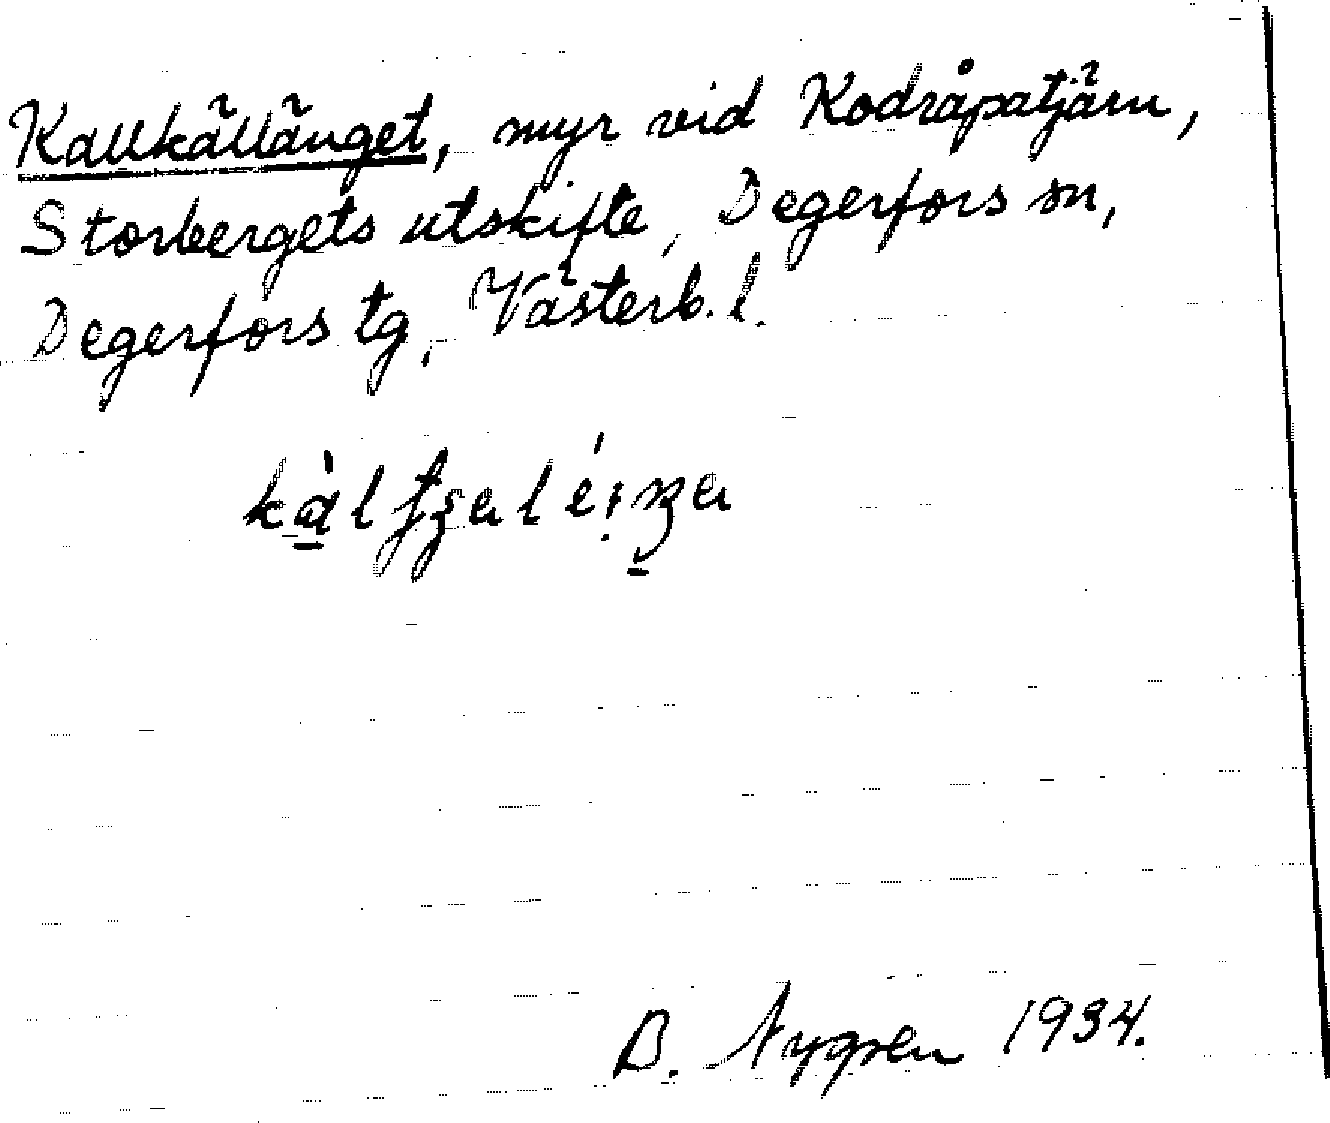 Kallkälländet, myr vid Kodråpatjärn,
Storbergets utskifte, Degerfors sn,
Degerfors tg, Västerb. l.
B. Nygren 1934.